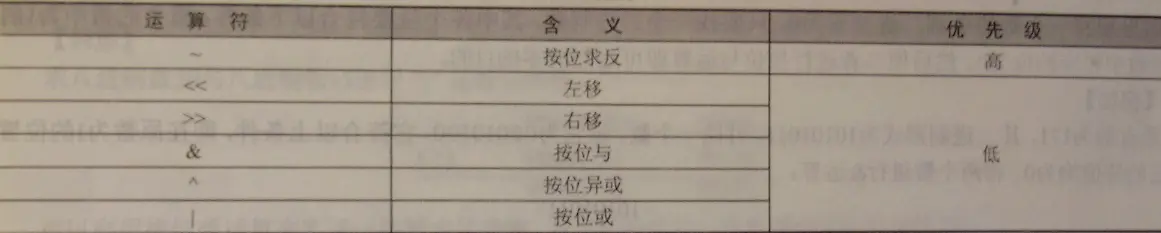 运算符 含义 优先级
~ 按位求反 高
<< 左移
>> 右移
& 按位与 低
^ 按位异或
| 按位或